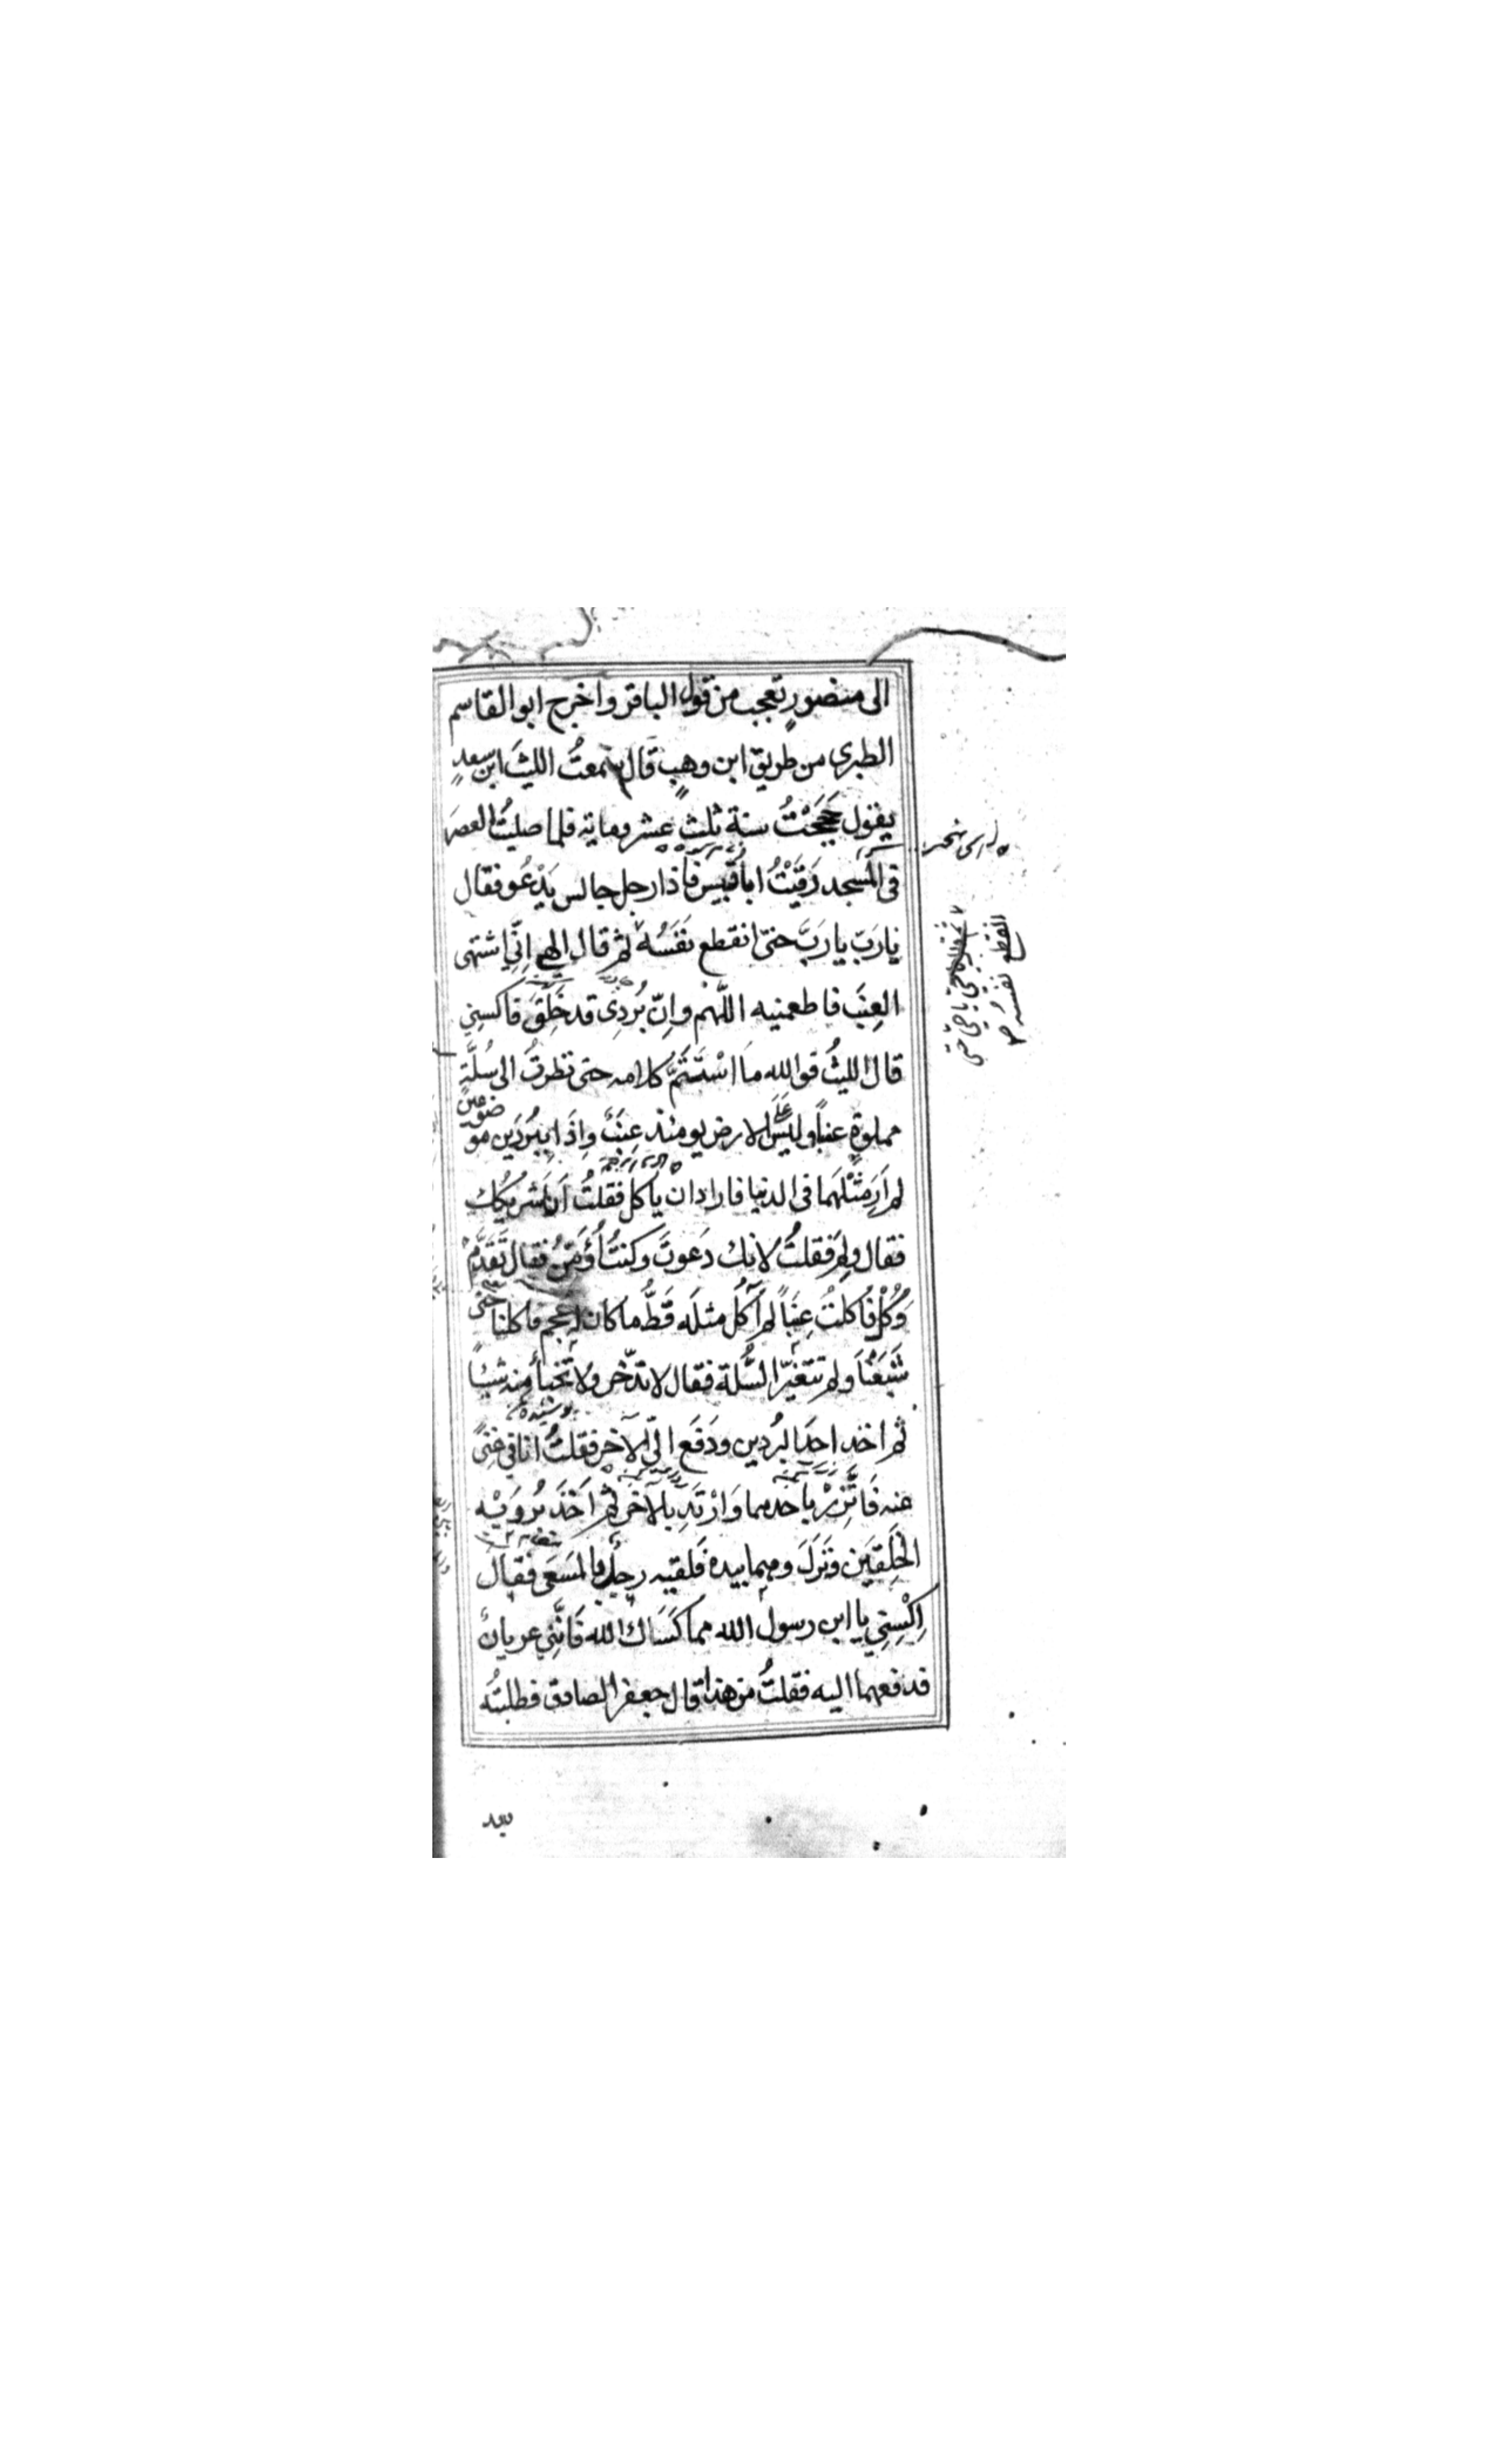 الى منصورٍ تعجب من قول الباقر واخرج ابو القاسم
الطبرى من طريق ابن وهبٍ قال سمعتُ الليثَ ابن سعدٍ
يقول حَجَجْتُ سنة ثلث عشر ومايه فلما صليتُ العصرَ
فى المسجد رَقَيْتُ ابا قُبَيس فاذا رجل جالس يَدْعُو فقال
يا رَبّ يا رَبَّ حتى انقطع نَفَسُه ثم قال الهى اِنّى اشتهى
العِنَب فاطعمنيه اللّهمّ واِنّ بُرْدِى قد خَلِقَ فاكسِنِي
قال الليثُ فوالله ما اسْتَتَمَّ كلامه حتى نظرتُ الى سُلَّةٍ
مملوةٍ عنباً وليس على الارض يومئذ عِنَبٌ واِذا ببُرْدَين موضوعين
لم اَرَ مثْلَهما فى الدنيا فاراد ان ياكل فقلتُ انا شريكك
فقال ولِمَ فقلتُ لانك دَعوتَ وكنتُ اُؤَمّنُ فقال تَقَدَّمْ
وكُلْ فاكلتُ عِنَباً لم آكُل مثلَه قَطُّ ما كان له عجم فاكلنا حتى
شَبَعْنَا ولم تتغيّر السُّلة فقال لا تدّخر ولا تخبأ منه شيئاً
ثم اخذ احدَ البُردين ودَفَع الىّ الآخر فقلتُ انا فى غِنىً
عنه فَاتَّزِرْ باحدهما وَارْتَدِ بالآخَر ثم اَخَذَ بُرْدَيْه
الخَلِقَين ونَزَلَ وهما بيده فلقيه رجلٌ بالمَسعَى فقال
اِكْسِنِي يا ابن رسول الله مما كَسَاك الله فَاِنَّنِي عريانٌ
فدفعهما اليه فقلتُ من هذا قال جعفر الصادق فطلبتُه
انقطع نفسُه